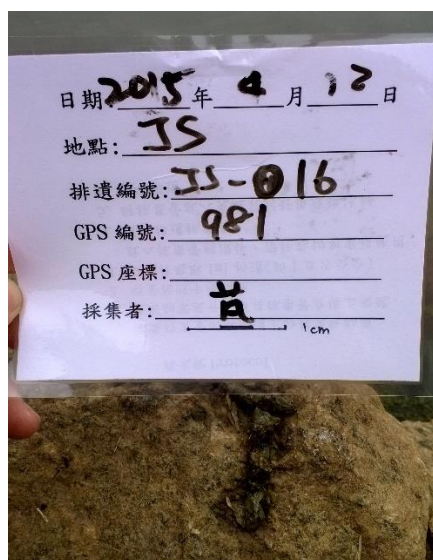 日期2015年4月12日
地點:JS
排遺編號:JS-016
GPS 編號:981
GPS 座標:
採集者:
1cm